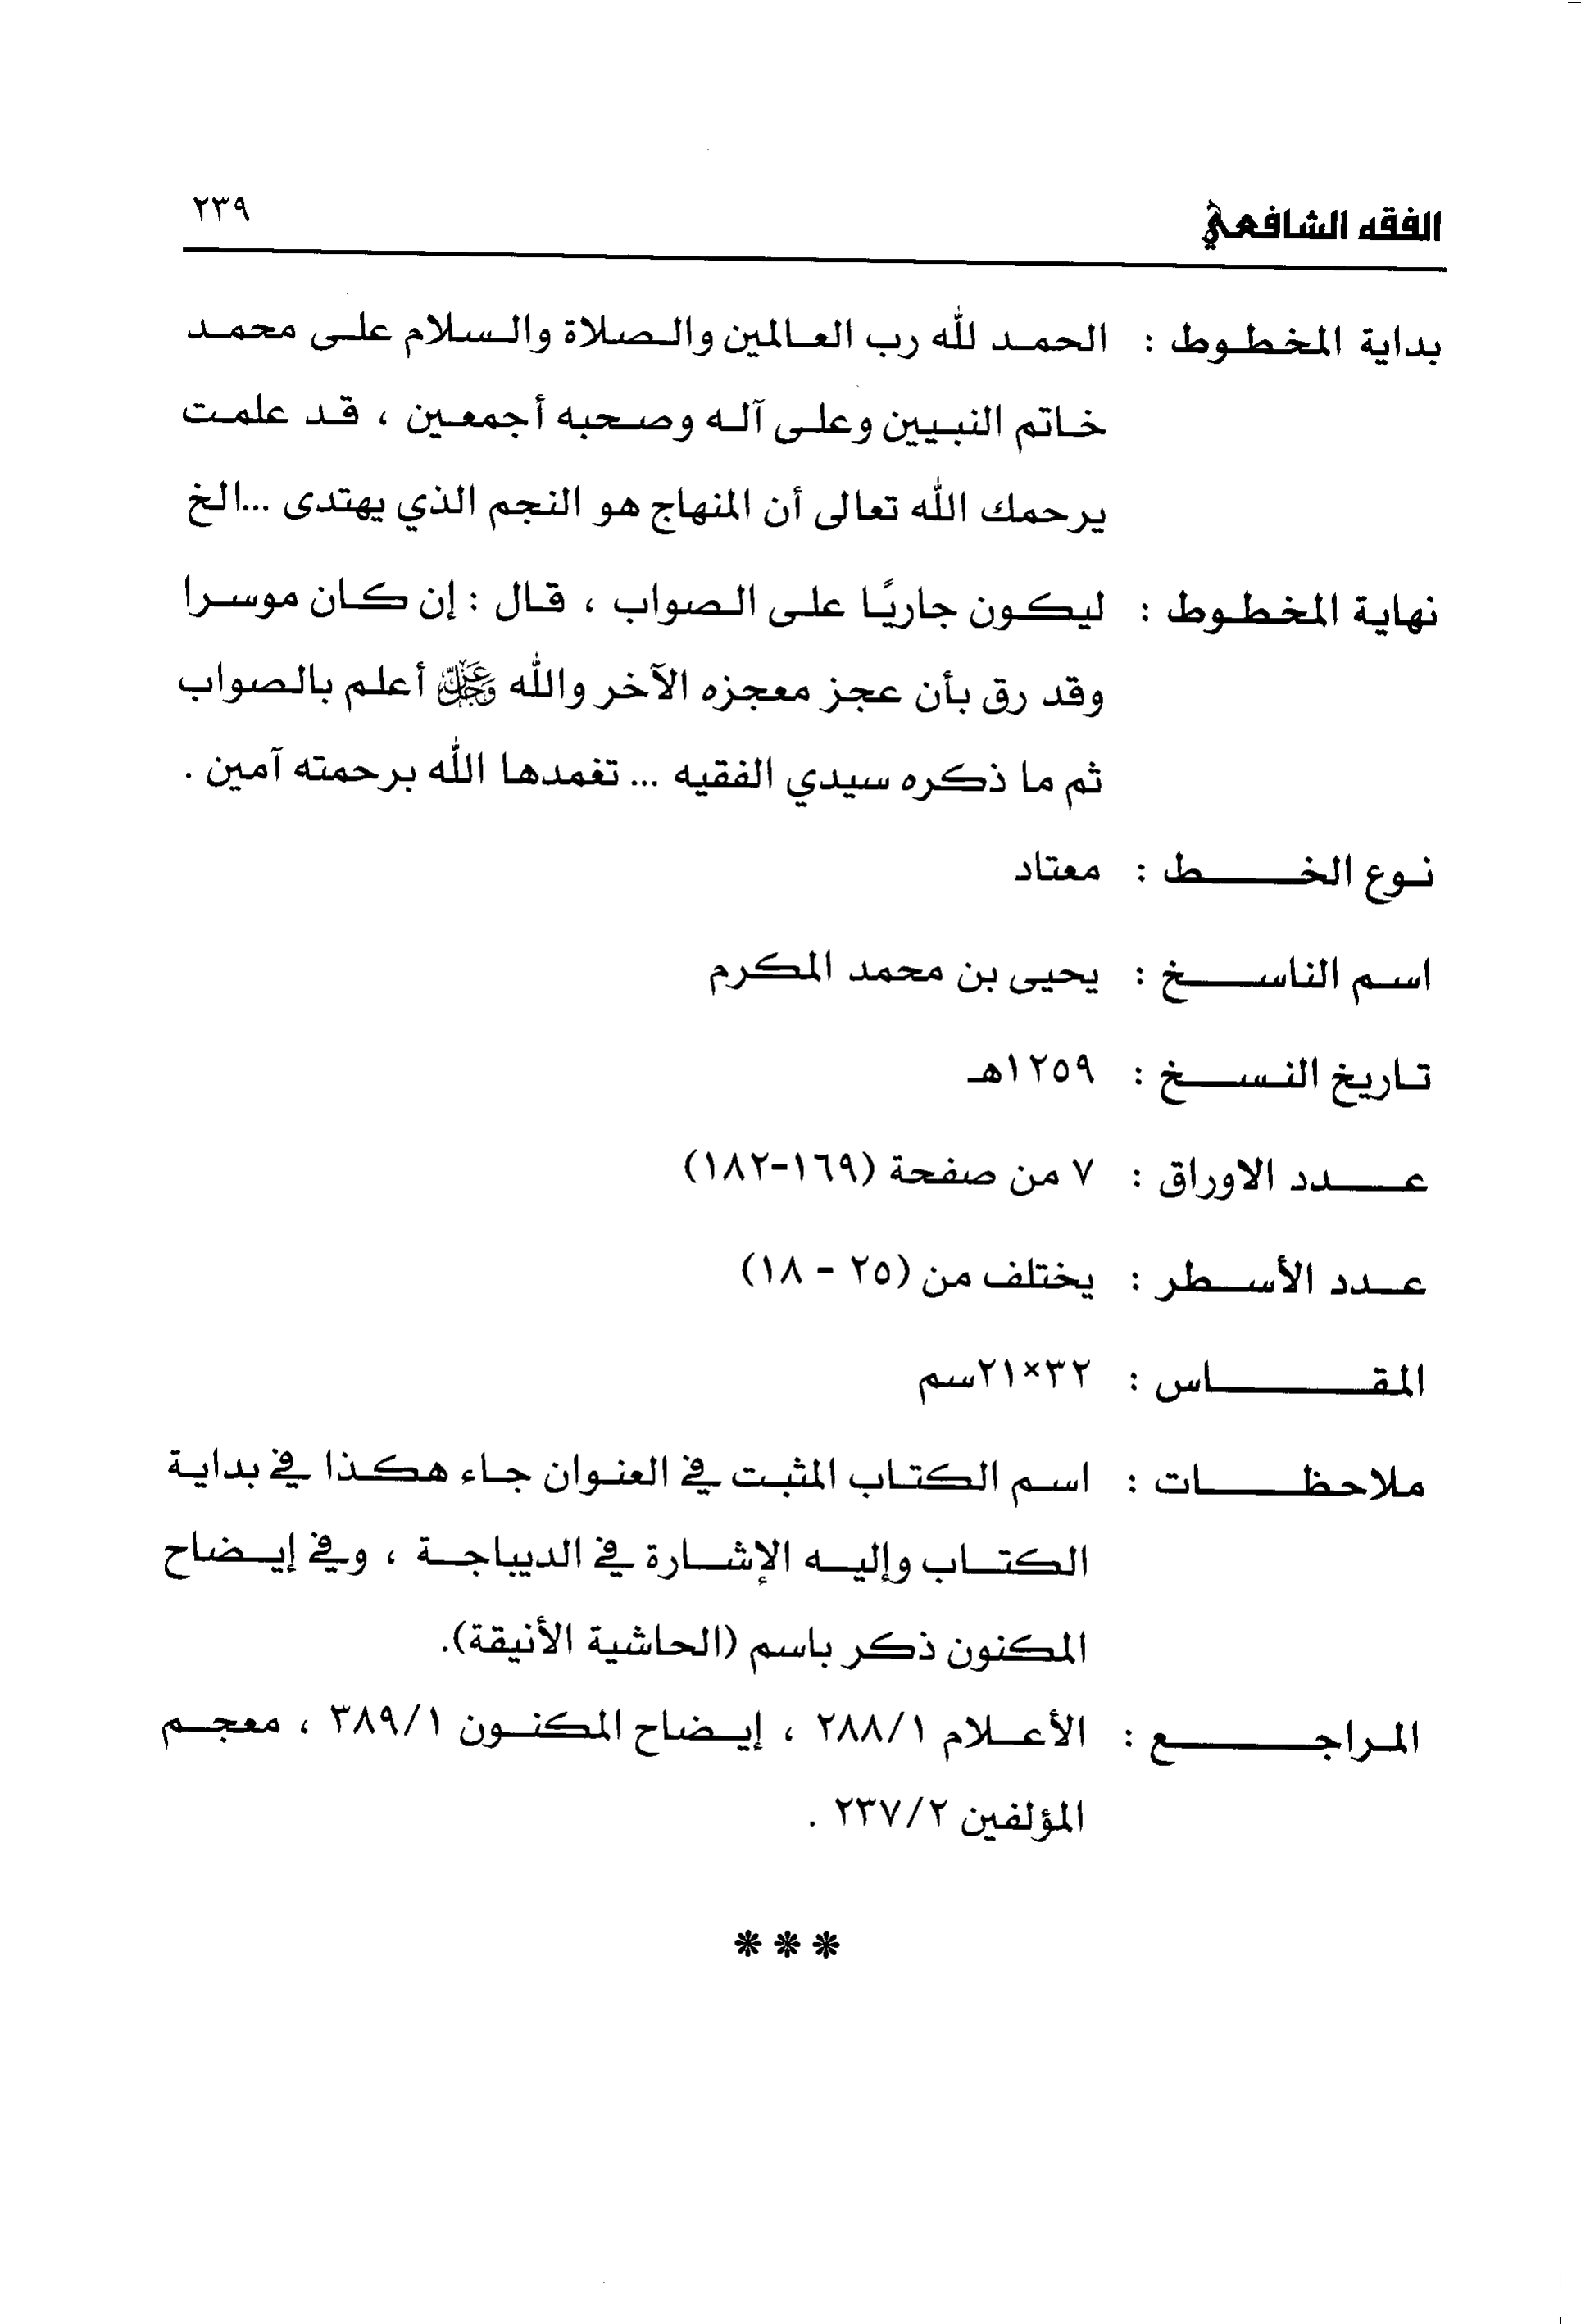 الفقه الشافعي
٢٣٩
بداية المخطوط : الحمد لله رب العالمين والصلاة والسلام على محمد
خاتم النبيين وعلى آله وصحبه أجمعين ، قد علمت
يرحمك الله تعالى أن المنهاج هو النجم الذي يهتدى ...الخ
نهاية المخطوط : ليكون جاريًا على الصواب ، قال : إن كان موسرا
وقد رق بأن عجز معجزه الآخر والله ﷿ أعلم بالصواب
ثم ما ذكره سيدي الفقيه ... تغمدها الله برحمته آمين .
نوع الخط : معتاد
اسم الناسخ : يحيى بن محمد المكرم
تاريخ النسخ : ١٢٥٩هـ
عدد الاوراق : ٧ من صفحة (١٦٩-١٨٢)
عدد الأسطر : يختلف من (٢٥ - ١٨)
المقاس : ٣٢×٢١سم
ملاحظات : اسم الكتاب المثبت في العنوان جاء هكذا في بداية
الكتاب وإليه الإشارة في الديباجة ، وفي إيضاح
المكنون ذكر باسم (الحاشية الأنيقة).
المراجع : الأعلام ٢٨٨/١ ، إيضاح المكنون ٣٨٩/١ ، معجم
المؤلفين ٢٣٧/٢ .
***